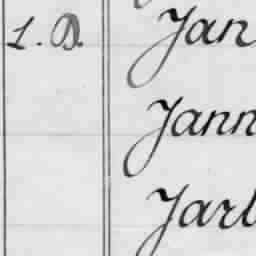 L. D. Jan
Jann
Jarl